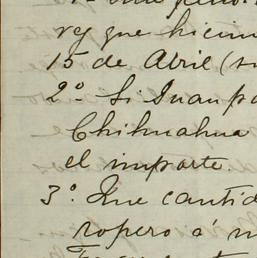 rey que hicim
15 de Abril (
2º Si Juan pa
Chihuahua
el importe.
3º Que cantid
ropero á m